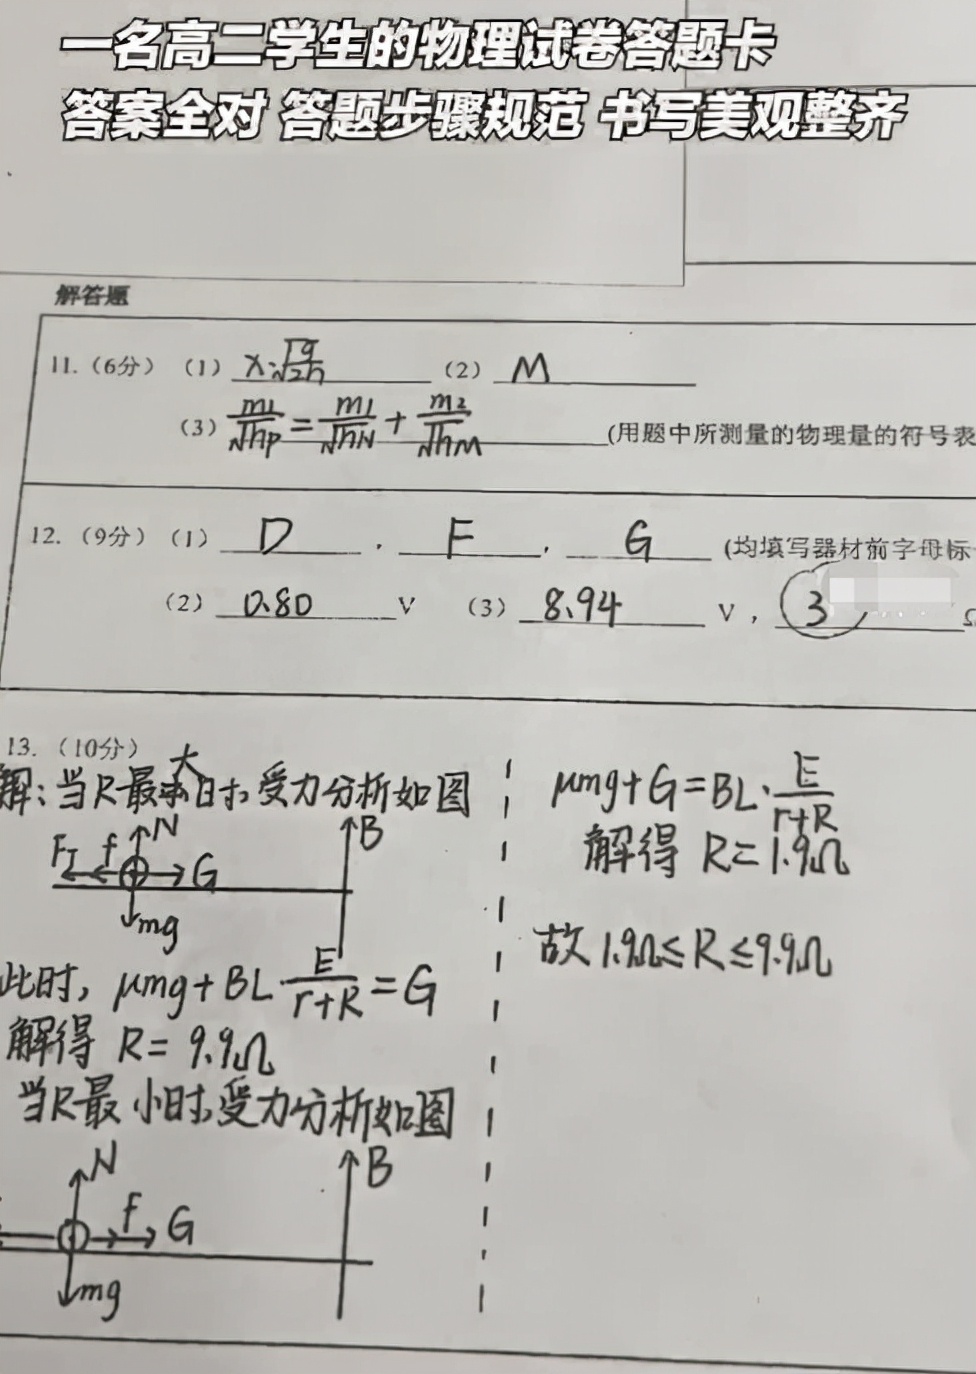 一名高二学生的物理试卷答题卡
答案全对 答题步骤规范 书写美观整齐
解答题
11.（6分）（1）x·√g/√2h （2）M
（3）m1/√hP = m1/√hN + m2/√hM (用题中所测量的物理量的符号表
12.（9分）（1）D ， F ， G (均填写器材前字母标
（2）0.80 V （3）8.94 V ， 3 Ω
13.（10分）
解:当R最大时,受力分析如图
FI f N G B
mg
此时, μmg+BL·E/(r+R)=G
解得 R= 9.9Ω
当R最小时,受力分析如图
N f G B
mg
μmg+G=BL·E/(r+R)
解得 R=1.9Ω
故 1.9Ω≤R≤9.9Ω